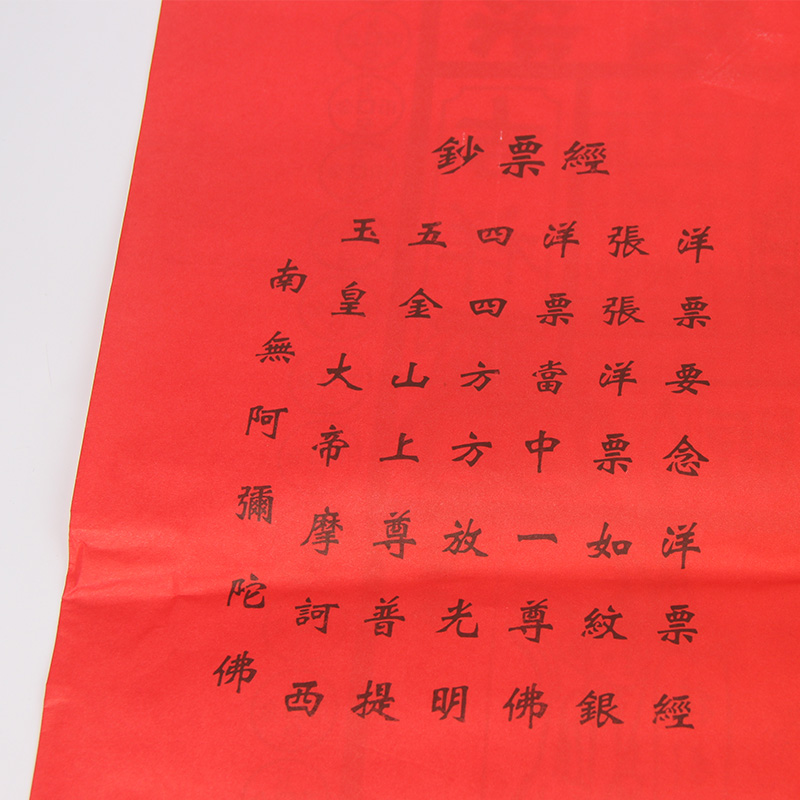 鈔票經
洋票要念洋票經
張張洋票如紋銀
洋票當中一尊佛
四四方方放光明
五金山上尊普提
玉皇大帝摩訶西
南無阿彌陀佛